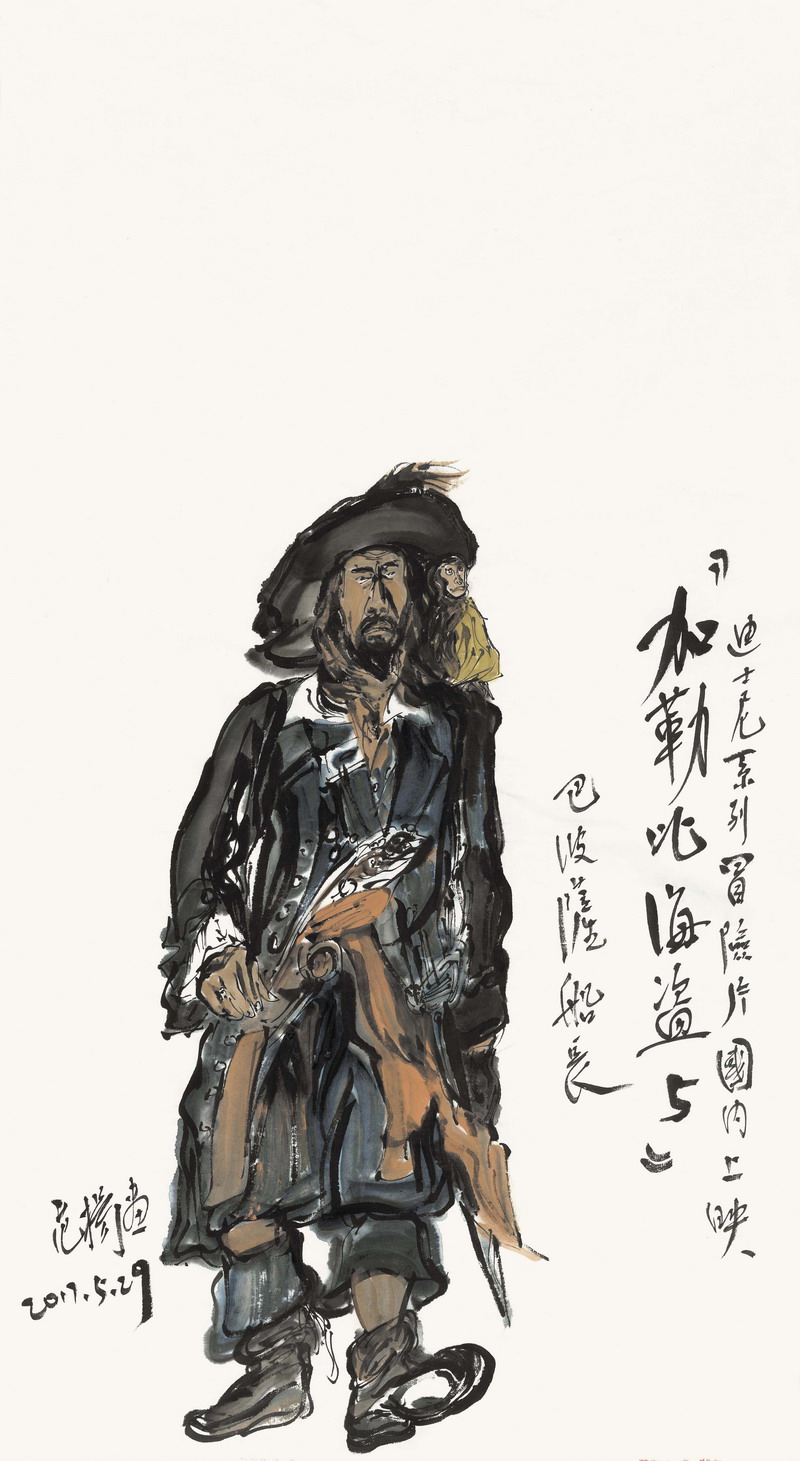 迪士尼系列冒險片國内上映
《加勒比海盗5》
巴波薩船長
范橋畫
2017.5.29